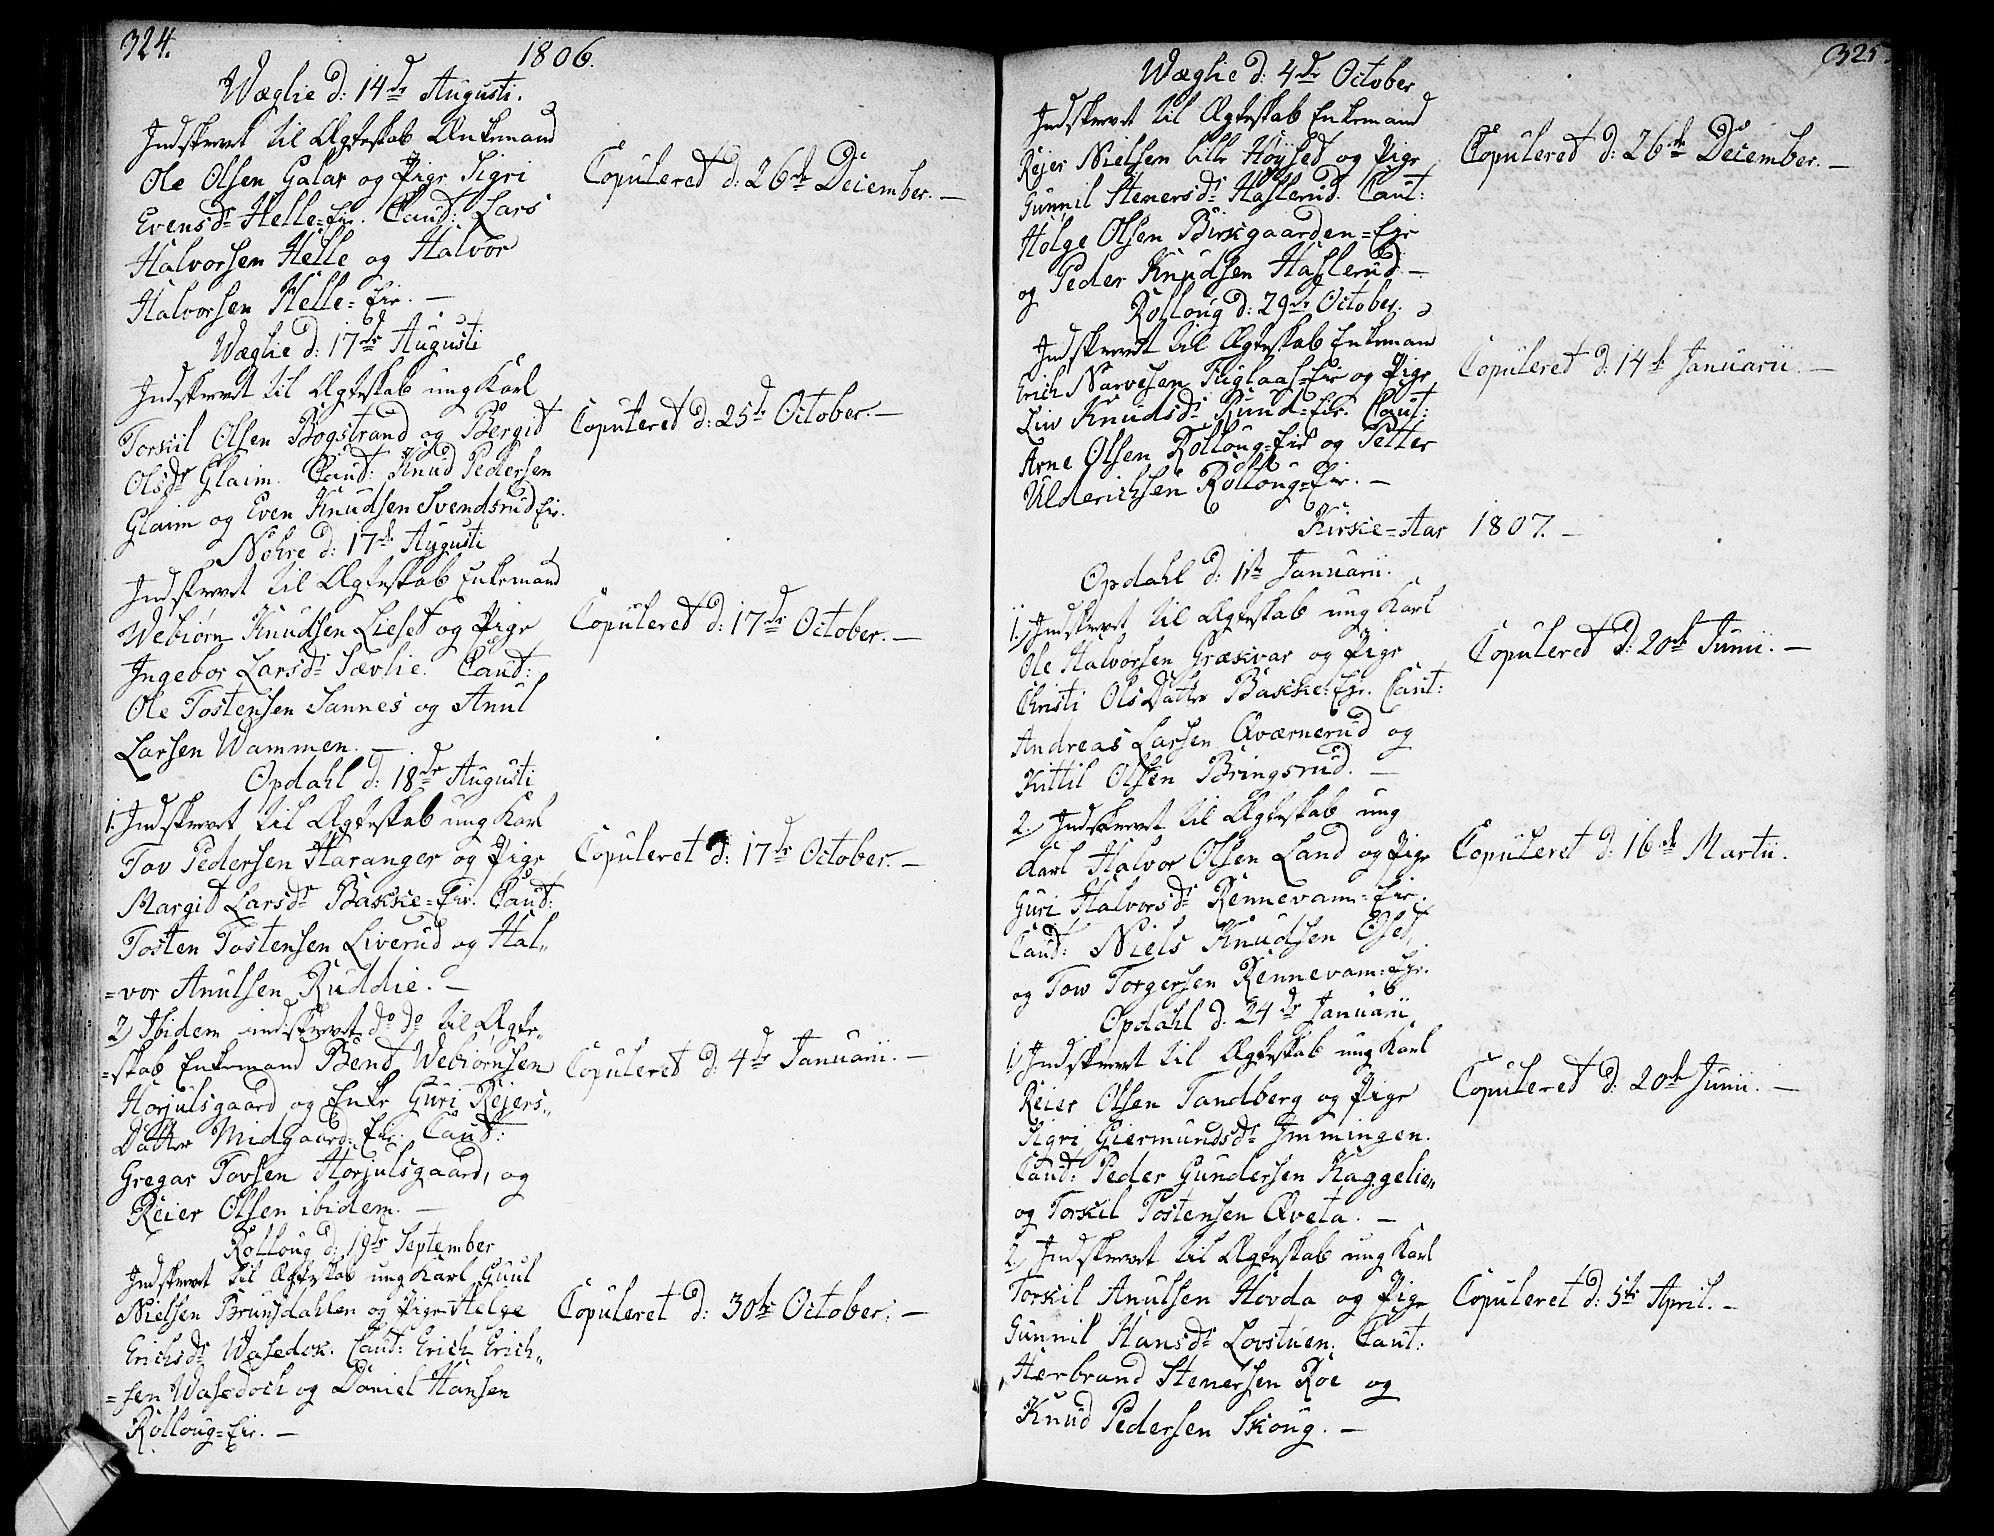 324.
1806.
Wæglie d: 14de Augusti.
Indskrevet til Ægteskab Ænkemand
Ole Olsen Galar og Pige Sigri
Evensdr Helle=Eir. Caut: Lars
Halvorsen Helle og Halvor
Halvorsen Helle=Eir. —
Copuleret d: 26de December. —
Wæglie d: 17de Augusti
Indskrevet til Ægteskab ung Karl
Torskil Olsen Bogstrand og Bergit
Olsdr Glaim. Caut: Knud Pedersen
Glaim og Even Knudsen Svendsrud Eir.
Copuleret d: 25de October. —
Nohre d: 17de Augusti
Indskrevet til Ægteskab Enkemand
Webiørn Knudsen Lieset og Pige
Ingebor Larsdr Sævlie. Caut:
Ole Tostensen Sannes og Anul
Larsen Wammen. —
Copuleret d: 17de October. —
Opdahl d: 18de Augusti
1. Indskrevet til Ægteskab ung Karl
Tov Pedersen Haranger og Pige
Margit Larsdr Bakke=Eir. Caut:
Tosten Tostensen Liverud og Hal„
=vor Anulsen Ruddie. —
Copuleret d: 17de October. —
2) Ibidem indskrevet do do til Ægte„
=skab Enkemand Bend Webiørnsen
Horjulsgaard og Enke Guri Reiers„
Datter Midgaard=Eir. Caut:
Gregar Tovsen Horjulsgaard, og
Reier Olsen ibidem. —
Copuleret d: 4de Januarii. —
Rolloug d: 19de September
Indskrevet til Ægteskab ung Karl Guul
Nielsen Brunsdahlen og Pige Helge
Erichsdr Wasedok. Caut: Erich Erich„
=sen Wasedoch og Daniel Hansen
Rolloug=Eir. —
Copuleret d: 30de October. —
325.
Wæglie d: 4de October
Indskrevet til Ægteskab Enkemand
Reier Nielsen lille Høyset og Pige
Gunnil Stenersdr Haslerud. Caut:
Holge Olsen Birkgaarden=Eir
og Peder Knudsen Haslerud. —
Copuleret d: 26de December. —
Rolloug d: 29de October.
Indskrevet til Ægteskab Enkemand
Erich Narvesen Fuglaas=Eir og Pige
Liv Knudsdr Rund=Eir. Caut:
Arne Olsen Rolloug=Eir og Petter
Ulderichsen Rolloug=Eir. —
Copuleret d: 14de Januarii. —
Kirke=Aar 1807. —
Opdahl d: 1ste Januarii.
1.) Indskrevet til Ægteskab ung Karl
Ole Halvorsen Græskvar og Pige
Christi Ols Datter Bakke=Eir. Caut:
Andreas Larsen Qværnerud og
Kittil Olsen Bringsrud. —
Copuleret d: 20de Junii. —
2.) Indskrevet til Ægteskab ung
Karl Halvor Olsen Land og Pige
Guri Halvorsdr Rennevam=Eir.
Caut: Niels Knudsen Øset,
og Tow Torgersen Rennevam=Eir.
Copuleret d: 16de Martii.
Opdahl d. 24de Januarii
1.) Indskrevet til Ægteskab ung Karl
Reier Olsen Tandberg og Pige
Sigri Giermundsdr Immingen.
Caut: Peder Gundersen Kaggelie„
og Torskil Tostensen Qveta. —
Copuleret d: 20de Junii. —
2.) Indskrevet til Ægteskab ung Karl
Torskil Anulsen Hovda og Pige
Gunnil Hansdr Lovstuen. Caut:
Herbrand Stenersen Roe og
Knud Pedersen Skoug. —
Copuleret d: 5te April. —